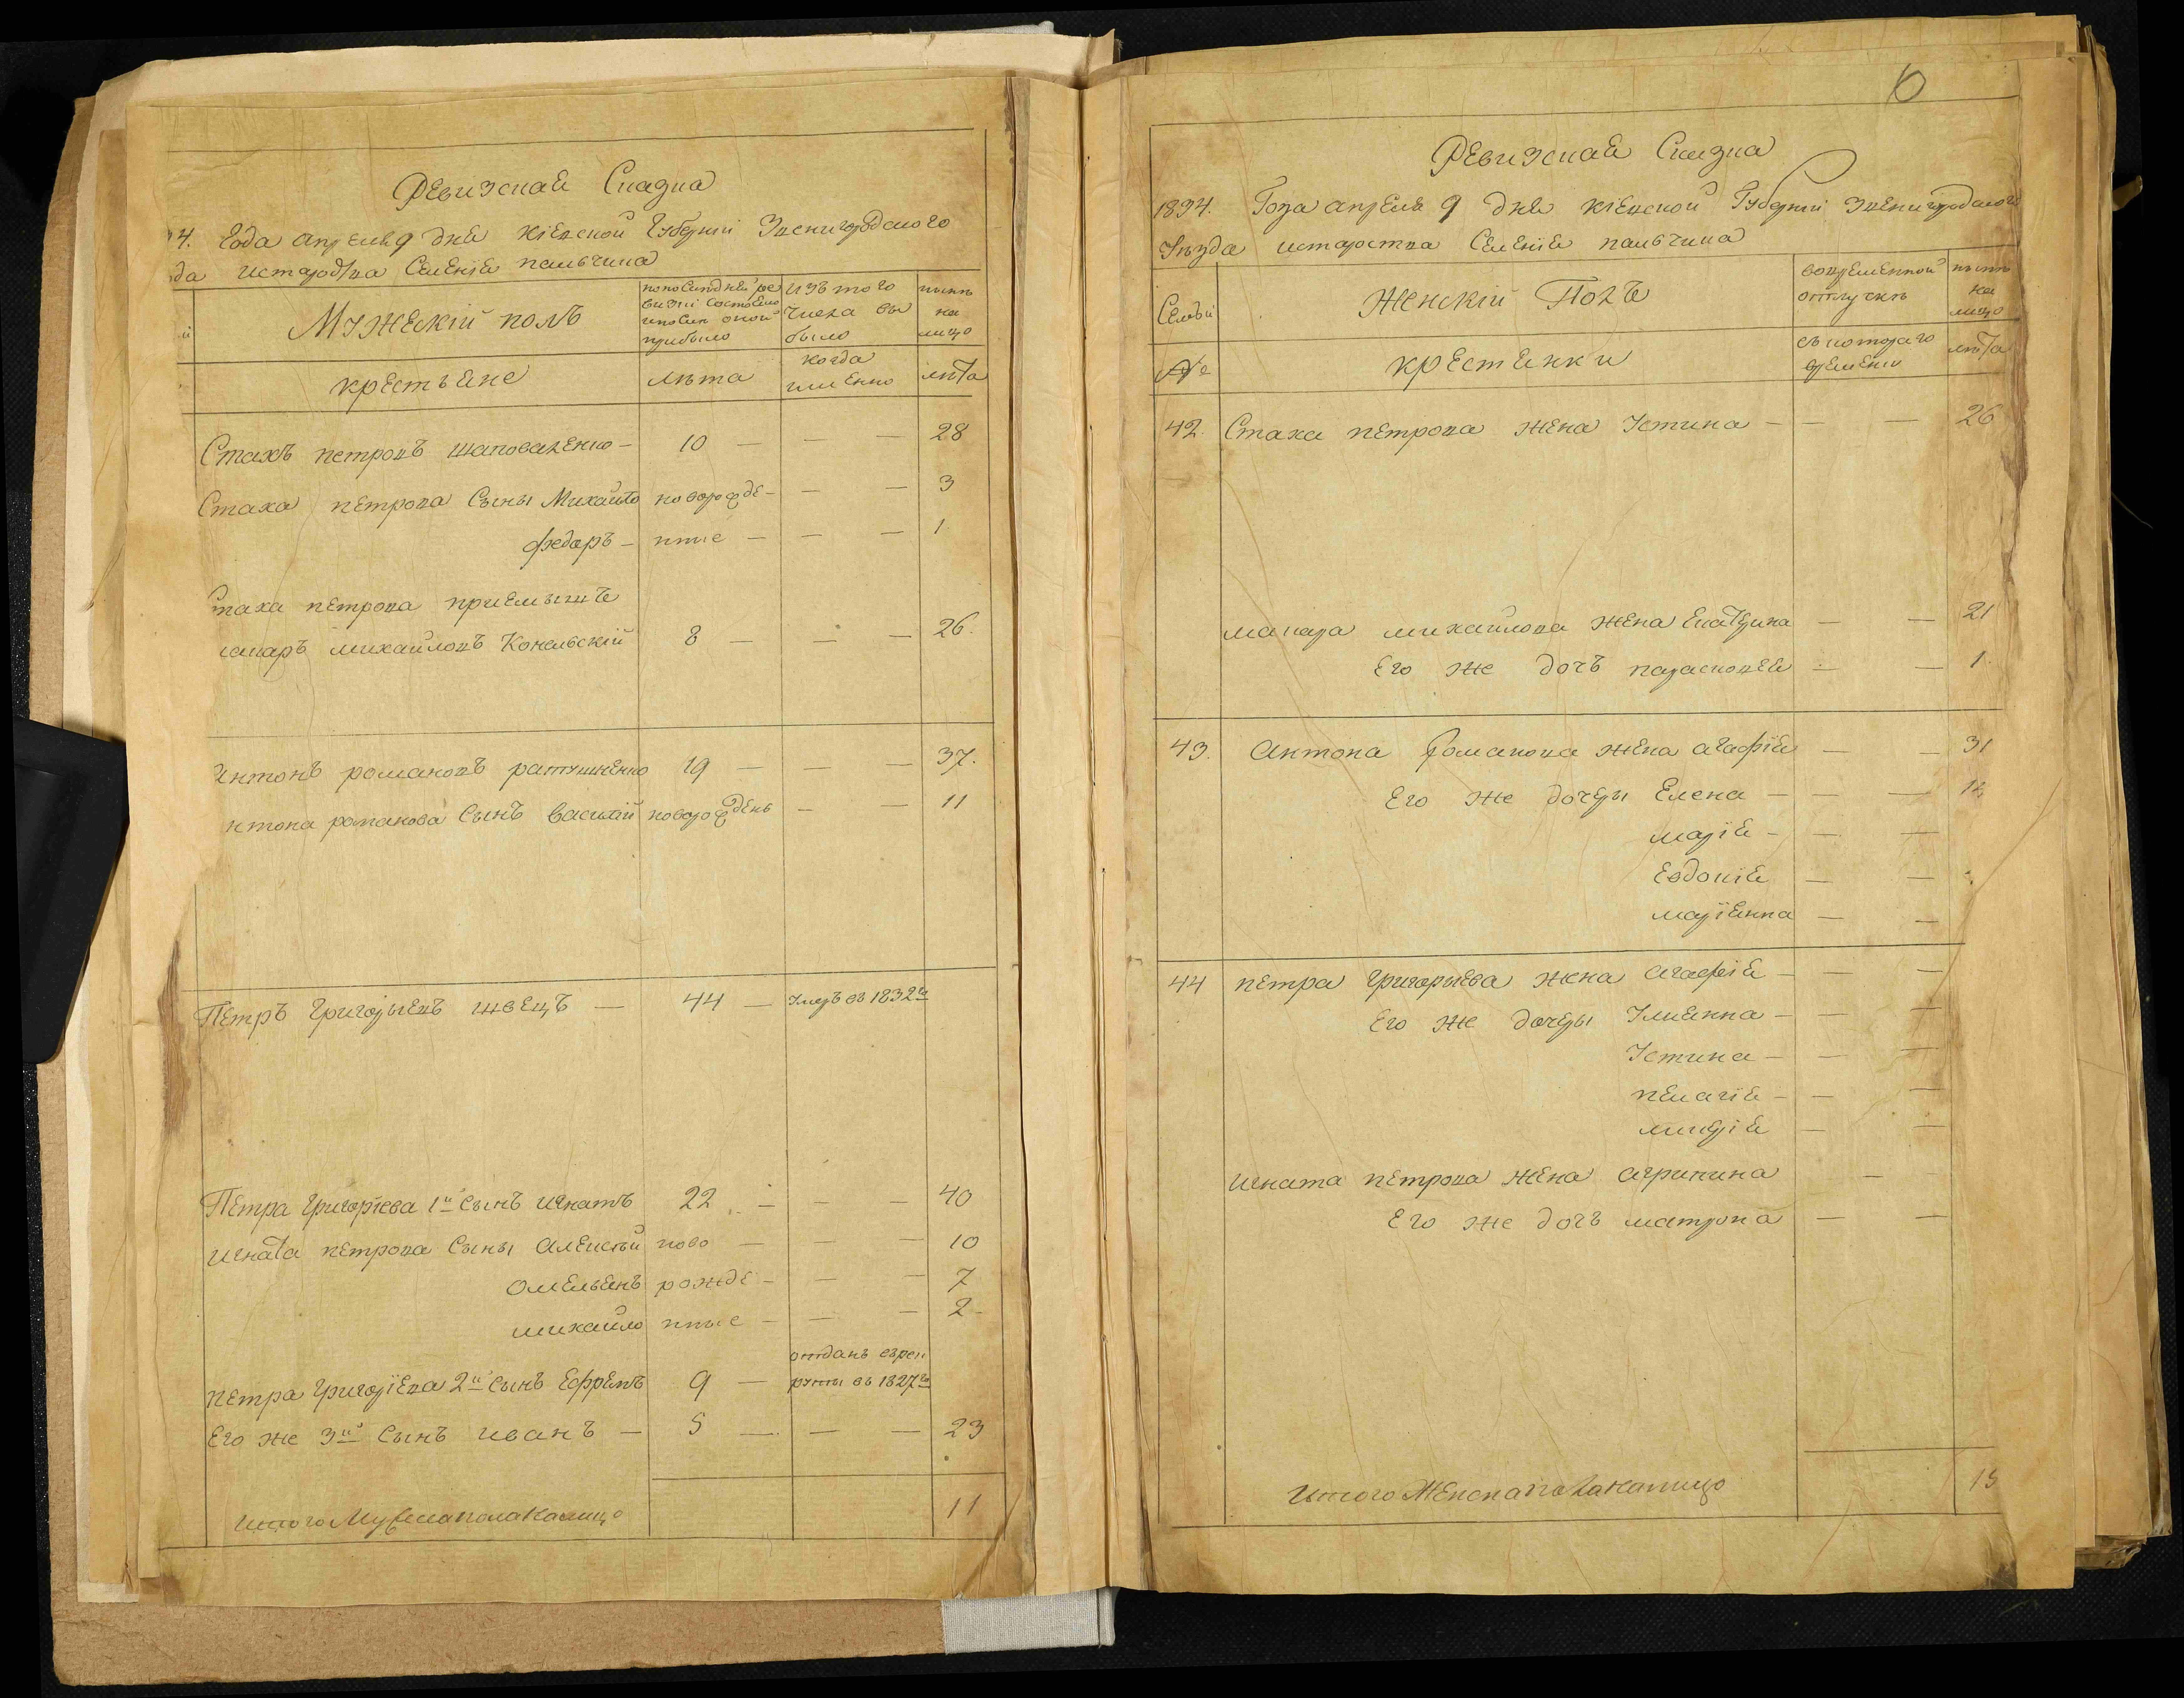 Ревизская Сказка
4. Года апреля 9 дня кіевской Губерніи Звенигородского
да староства Селеніе пальчика
Мужескій полъ
по последней ре
визіи состояло
и после оной
прибыло
изъ того
числа вы
было
ныне
на
лицо
крестьяне
лѣта
когда
именно
лѣта
Стахъ петровъ шаповаленко — 10 — — — 28
Стаха петрова Сыны Михайло новорожде — — — 3
федаръ — нные — — — 1
таха петрова приемышъ
макаръ михайловъ Конельскій 8 — — — 26.
Антонъ романовъ ратушненко 19 — — — 37.
нтона романова Сынъ василій новорождень — — 11
Петръ Григорьевъ швецъ — 44 — Умеръ въ 1832 г
Петра Григоріева 1й Сынъ игнатъ 22 — — — 40
игната петрова Сыны алексѣй ново — — — 10
омельянъ рожде — — — 7
михайло нные — — — 2 -
отданъ врек
Петра Григоріева 2й Сынъ Ефремъ 9 — руты въ 1827 г
Его же 3й Сынъ иванъ — 5 — — — 23
Итого Мужеска пола налицо 11
6
Ревизская Сказка
1834. Года апреля 9 дня кіевской Губерніи Звенигородского
Уѣзда староства Селеніе пальчика
Семьи
Женскій Полъ
во временной
отлучкѣ
ныне
на
лицо
№
крестянки
съ котораго
времени
лѣта
42. Стаха петрова жена Устина — — — 26
макара михайлова жена Екатерина — — 21
Его же дочь парасковея — — 1.
43. антона романова жена агафія — — 31
Его же дочери Елена — — — 12
марія — — —
Евдокія — —
маріянна — —
44 петра Григорьева жена агафія — — —
Его же дочери Улиянна — — —
Устина — — —
пелагія — — —
марія — —
игната петрова жена агрипина —
Его же дочь матрона — —
Итого Женска пола налицо 15